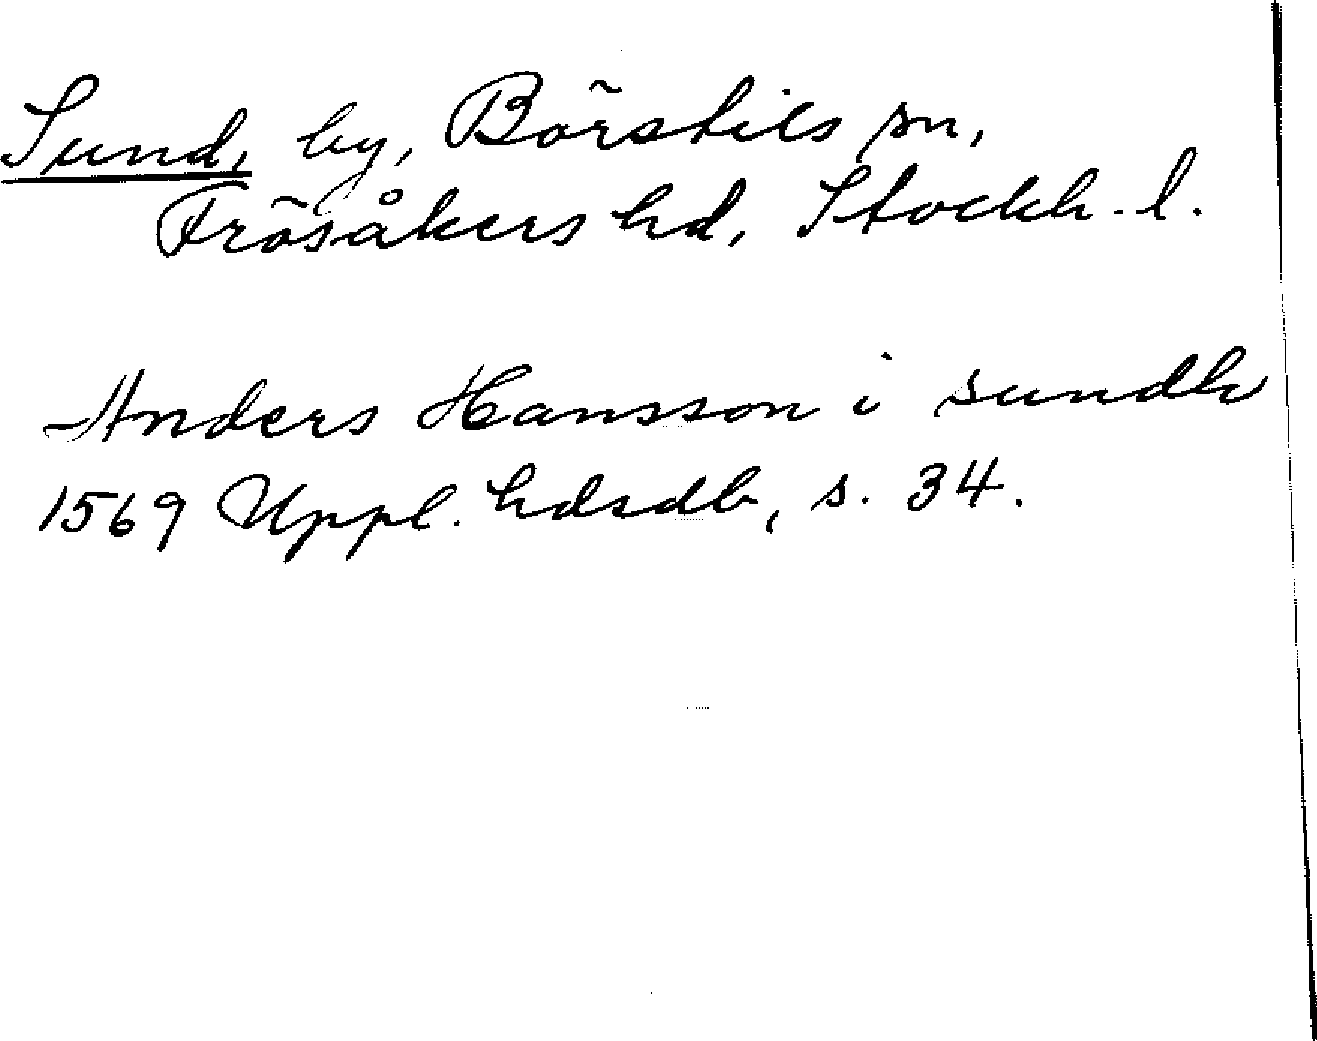 Sund, by, Börstils sn,
Frösåkers hd, Stockh. l.
Anders Hansson i sundh
1569 Uppl. hdsdb, s. 34.